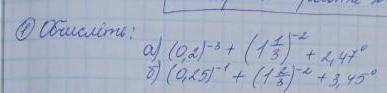 ① Обчисліть:
а) (0,2)⁻³ + (1 1/3)⁻² + 2,47⁰
б) (0,25)⁻¹ + (1 2/3)⁻² + 3,45⁰